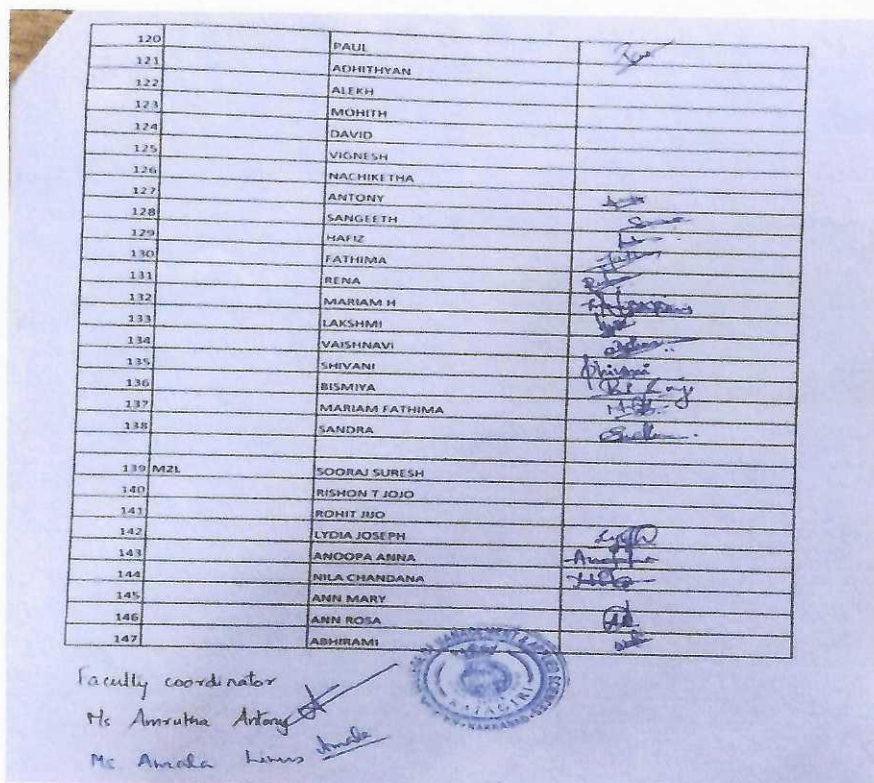 120 PAUL
121 ADHITHYAN
122 ALEKH
123 MOHITH
124 DAVID
125 VIGNESH
126 NACHIKETHA
127 ANTONY
128 SANGEETH
129 HAFIZ
130 FATHIMA
131 RENA
132 MARIAM H
133 LAKSHMI
134 VAISHNAVI
135 SHIVANI Shivani
136 BISMIYA
137 MARIAM FATHIMA
138 SANDRA
139 MZL SOORAJ SURESH
140 RISHON T JOJO
141 ROHIT JIJO
142 LYDIA JOSEPH
143 ANOOPA ANNA
144 NILA CHANDANA
145 ANN MARY
146 ANN ROSA
147 ABHIRAMI
MANAGEMENT & APPLIED SCIENCES
RAJAGIRI
KAKKANAD
Faculty coordinator
Ms Amrutha Antony
Ms Amala Linus Amala